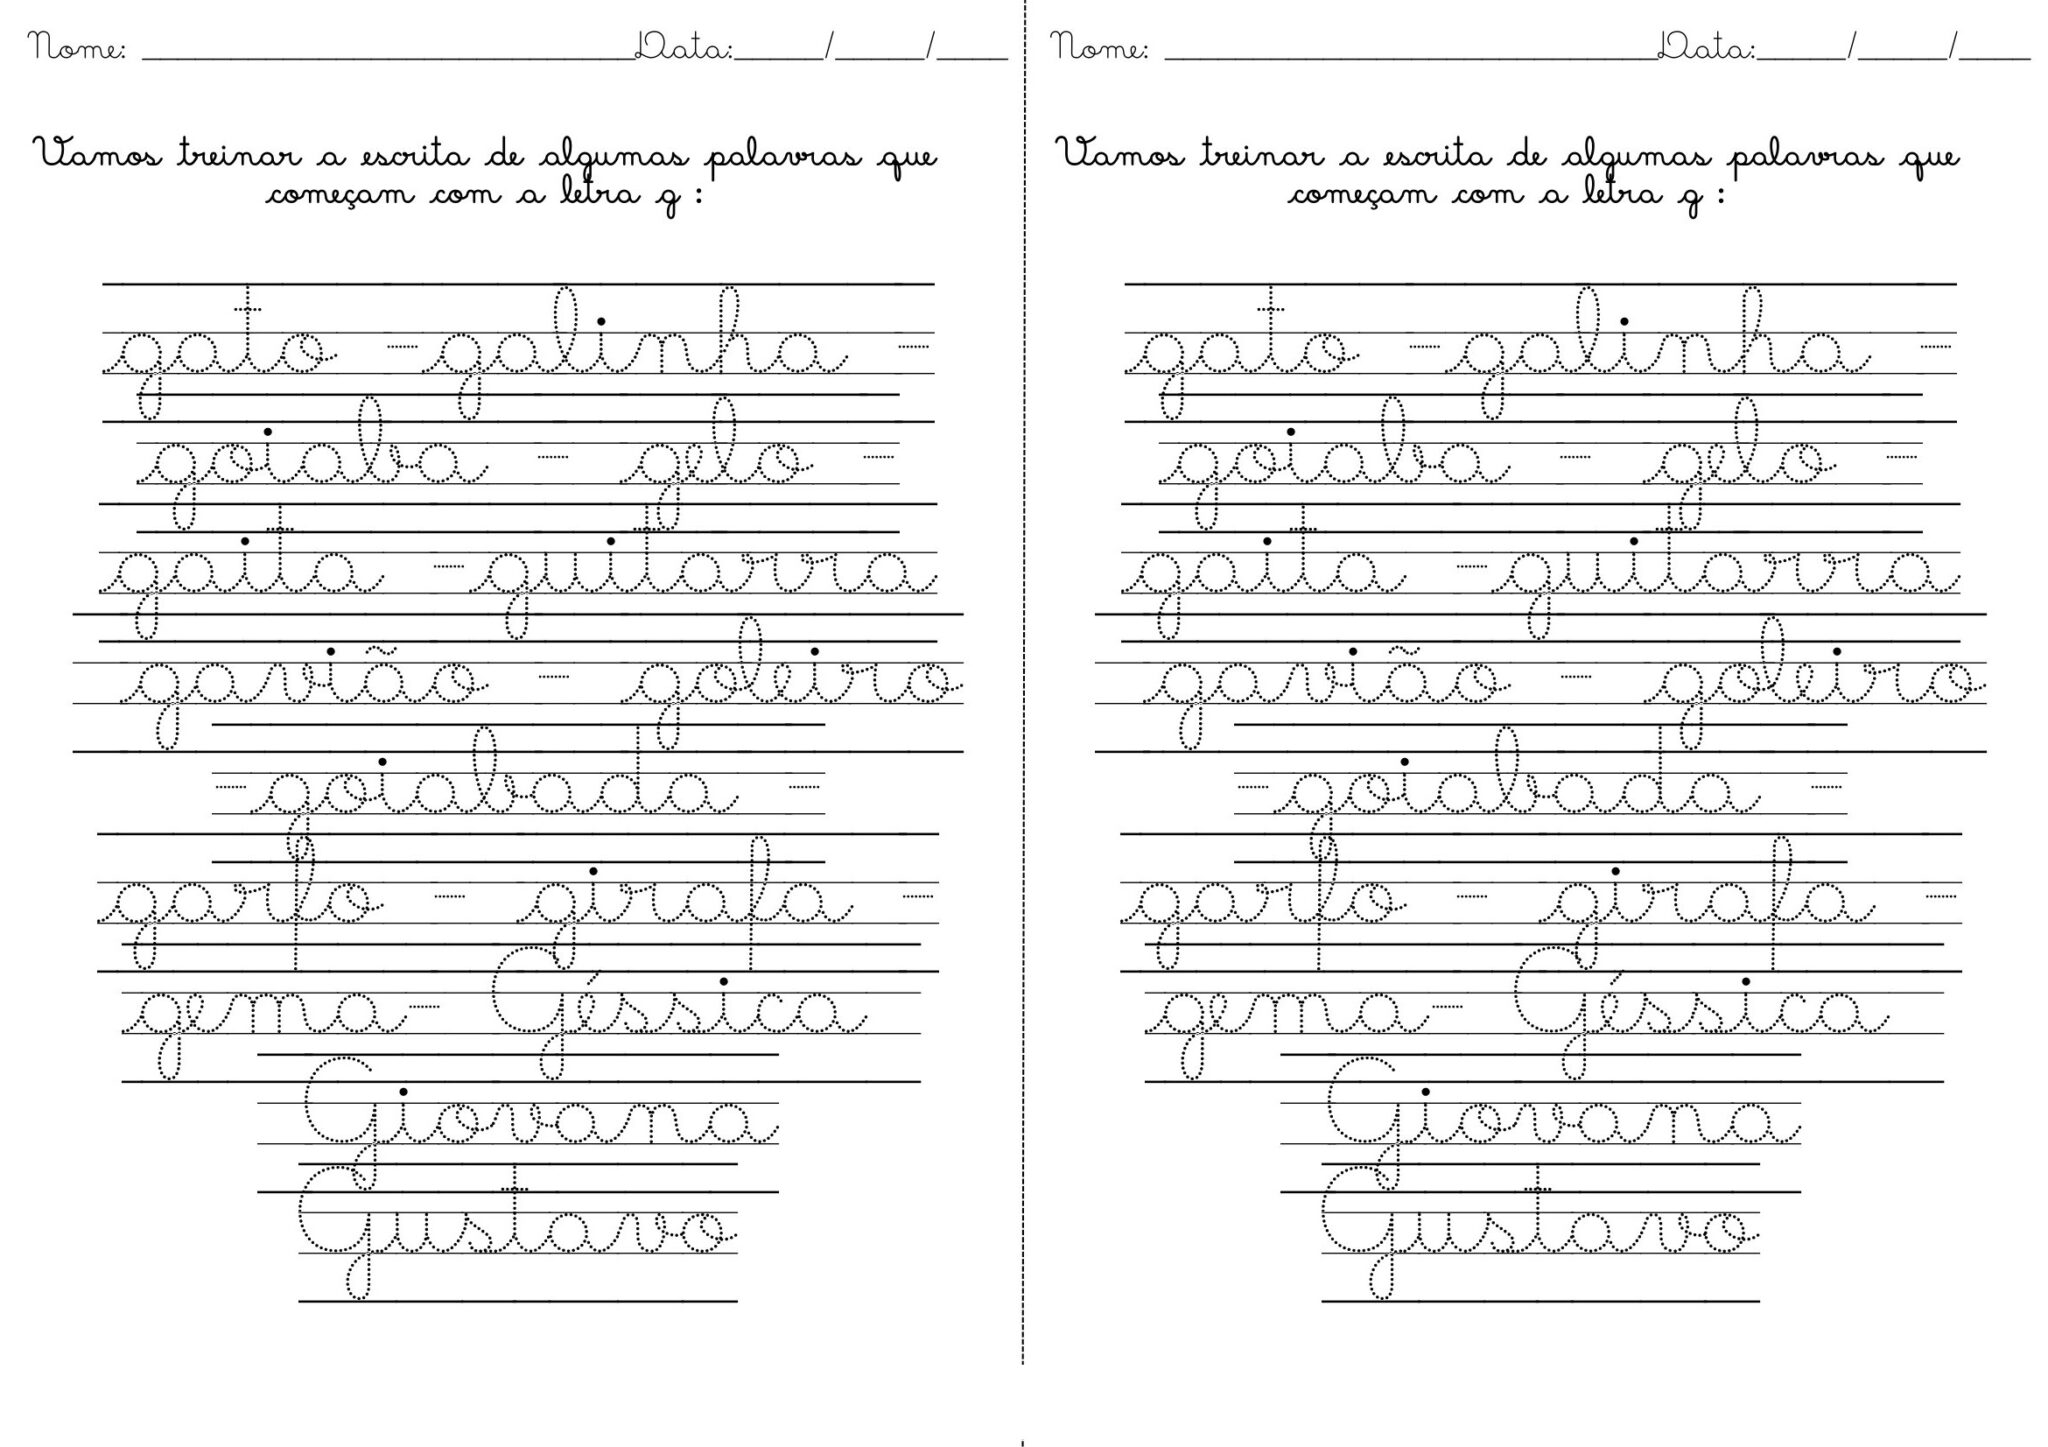 Nome: ____________________Data:_____/_____/____
Vamos treinar a escrita de algumas palavras que
começam com a letra g :
gato - galinha -
goiaba - gelo -
gaita - guitarra
gavião - goleiro
- goiabada -
garfo - girafa -
gema - Géssica
Giovana
Gustavo
Nome: ____________________Data:_____/_____/____
Vamos treinar a escrita de algumas palavras que
começam com a letra g :
gato - galinha -
goiaba - gelo -
gaita - guitarra
gavião - goleiro
- goiabada -
garfo - girafa -
gema - Géssica
Giovana
Gustavo